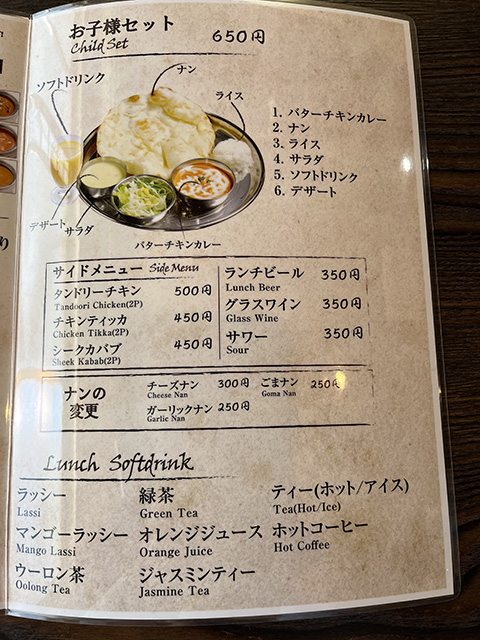 お子様セット 650円
Child Set
ソフトドリンク
ナン
ライス
デザート
サラダ
バターチキンカレー
1. バターチキンカレー
2. ナン
3. ライス
4. サラダ
5. ソフトドリンク
6. デザート
サイドメニュー Side Menu
タンドリーチキン 500円
Tandoori Chicken(2P)
チキンティッカ 450円
Chicken Tikka(2P)
シークカバブ 450円
Sheek Kabab(2P)
ランチビール 350円
Lunch Beer
グラスワイン 350円
Glass Wine
サワー 350円
Sour
ナンの
変更
チーズナン 300円
Cheese Nan
ごまナン 250円
Goma Nan
ガーリックナン 250円
Garlic Nan
Lunch Softdrink
ラッシー
Lassi
緑茶
Green Tea
ティー(ホット/アイス)
Tea(Hot/Ice)
マンゴーラッシー
Mango Lassi
オレンジジュース
Orange Juice
ホットコーヒー
Hot Coffee
ウーロン茶
Oolong Tea
ジャスミンティー
Jasmine Tea